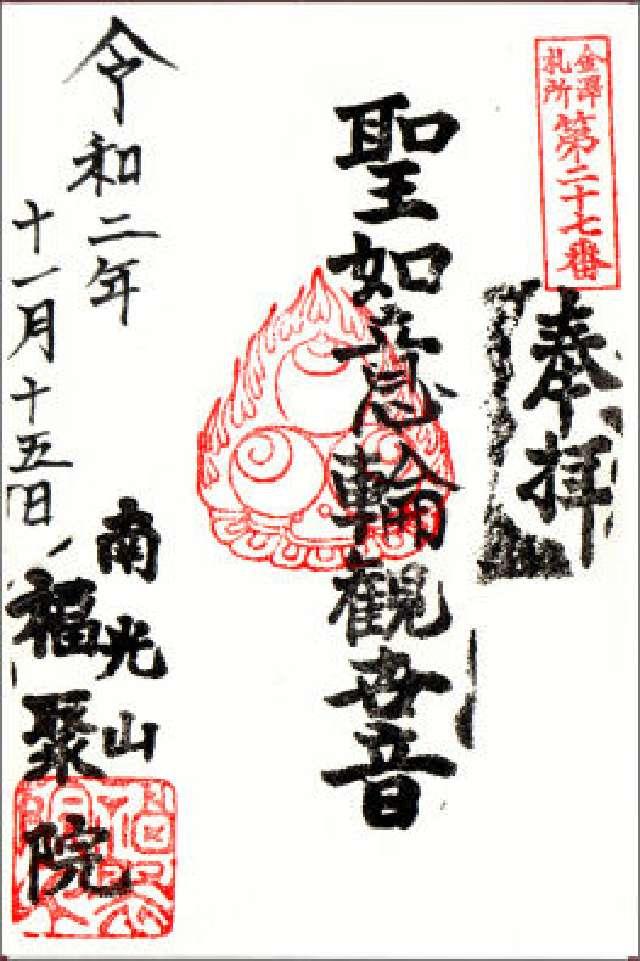 金澤
札所
第二十七番
奉拝
聖如意輪観世音
令和二年
十一月十五日
南光山
福聚院